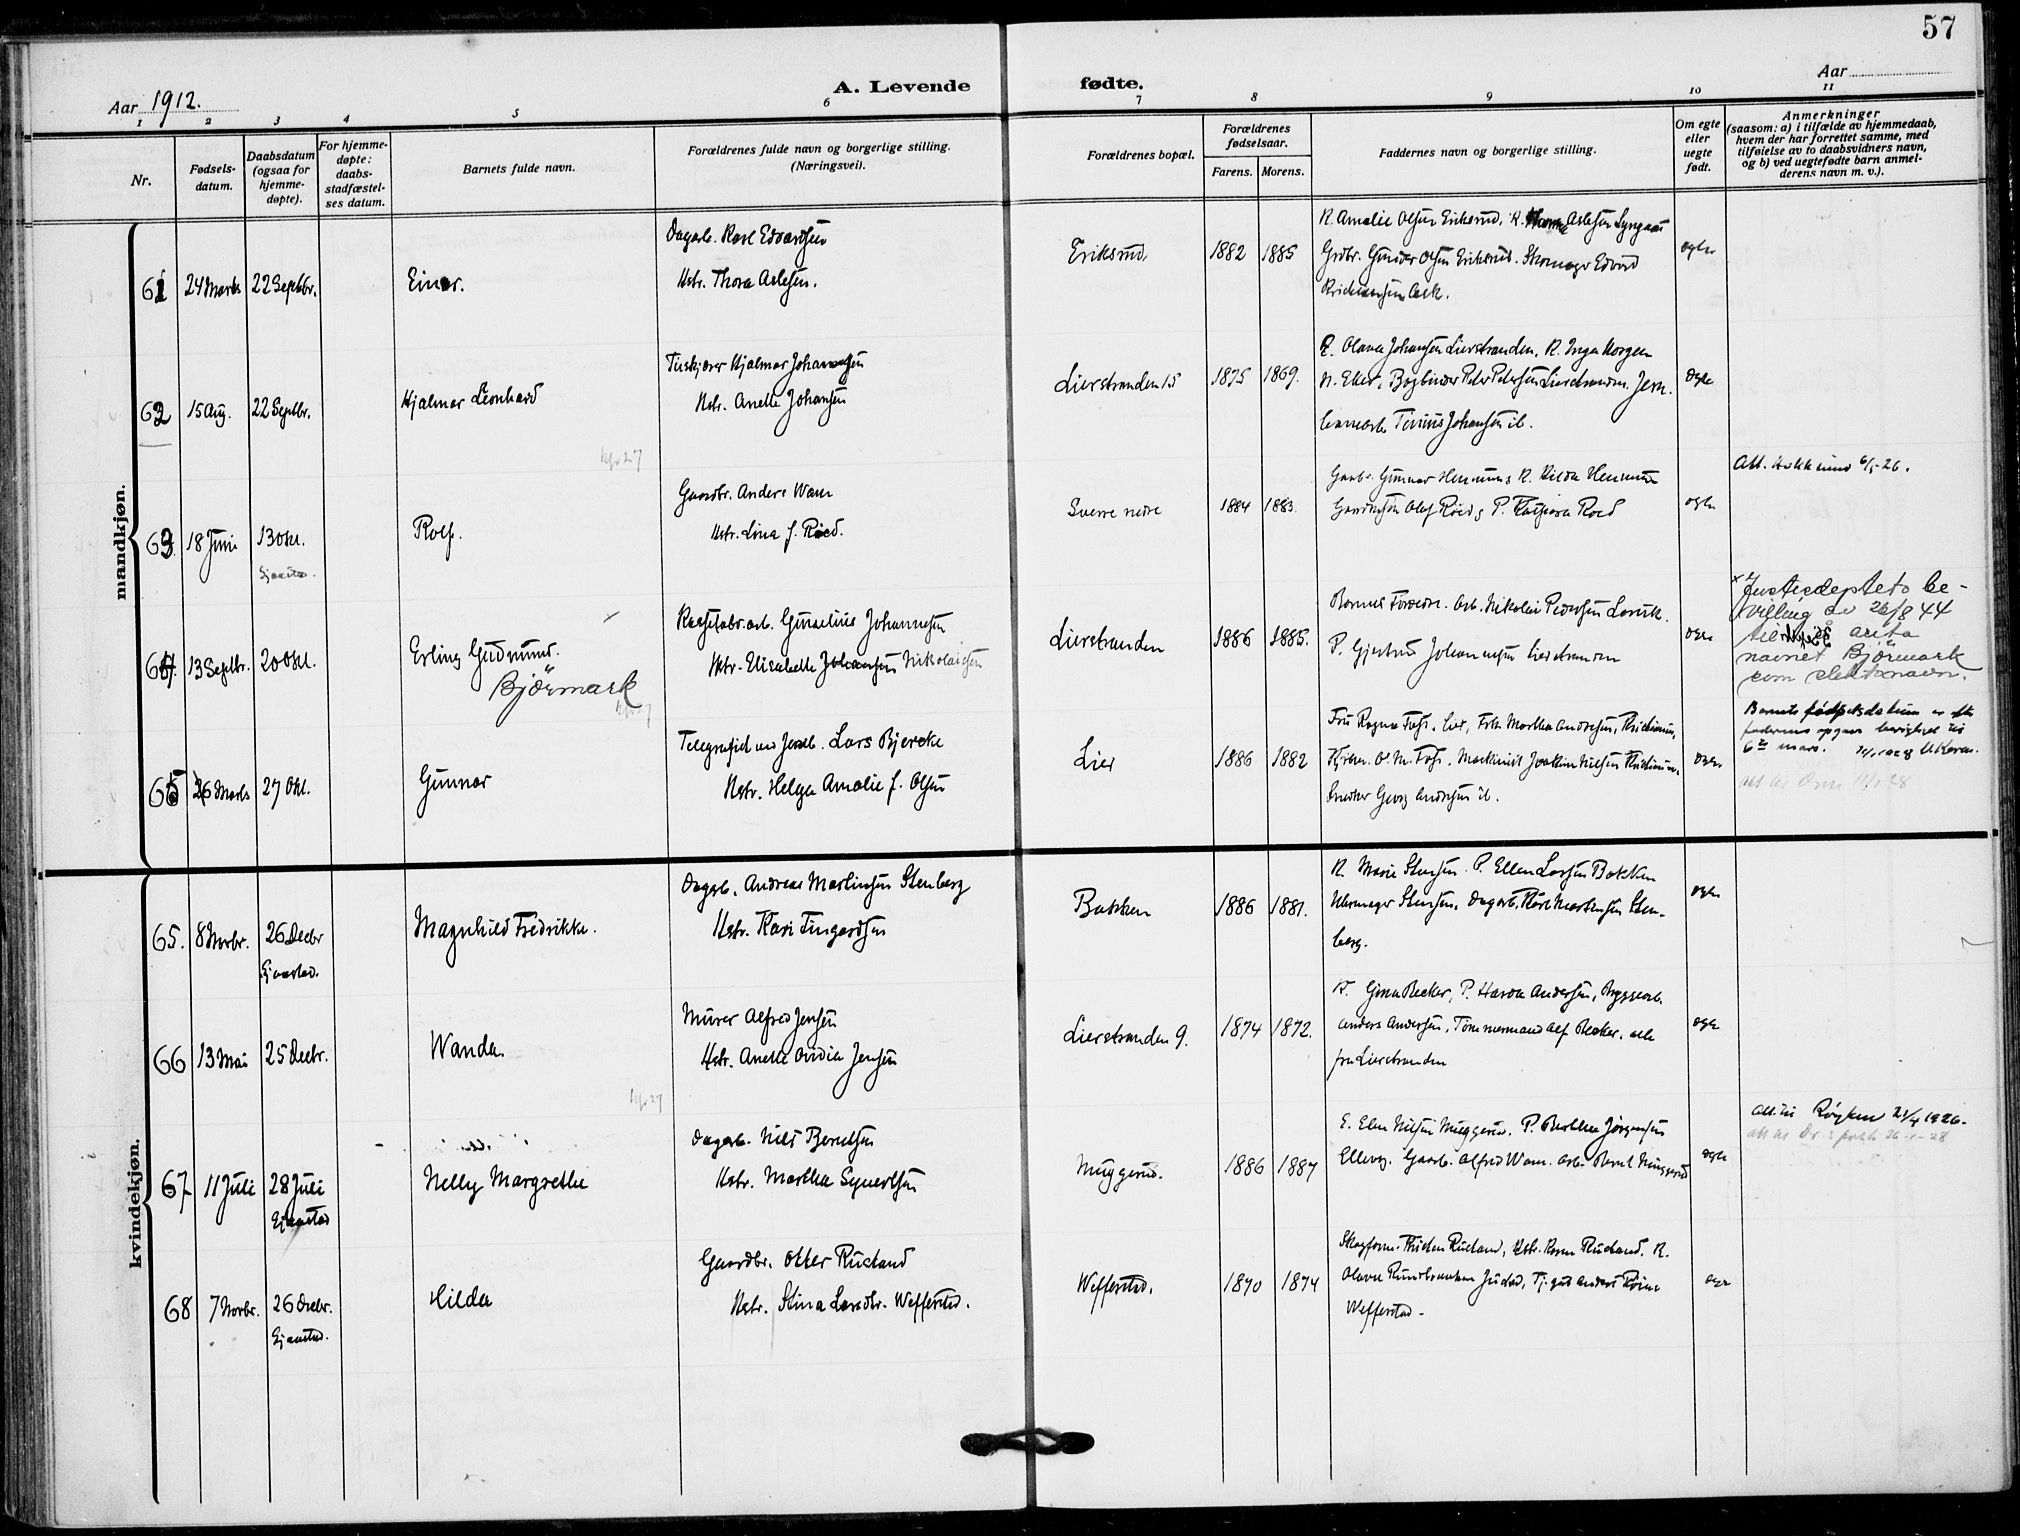 57
Aar 1912.
A. Levende fødte.
Aar
1 2 3 4 5 6 7 8 9 10 11
Nr.
Fødsels-
datum.
Daabsdatum
(ogsaa for
hjemme-
døpte).
For hjemme-
døpte:
daabs-
stadfæstel-
ses datum.
Barnets fulde navn.
Forældrenes fulde navn og borgerlige stilling.
(Næringsvei).
Forældrenes bopæl.
Forældrenes
fødselsaar.
Farens. Morens.
Faddernes navn og borgerlige stilling.
Om egte
eller
uegte
født.
Anmerkninger
(saasom: a) i tilfælde av hjemmedaab,
hvem der har forrettet samme, med
tilføielse av to daabsvidners navn,
og b) ved uegtefødte barn anmel-
derens navn m. v.).
mandkjøn.
61 24 Marts 22 Septbr.
Einar.
Dagarb. Karl Edvardsen
Hstr. Thora Aslesen.
Eriksrud. 1882 1885
K. Amalie Olsen Eriksrud, K. Aslesen Lyngaas
Grdbr. Gunder Olsen Eriksrud. Skomager Edvard
Kristiansen Ask.
egte
62 15 Aug. 22 Septbr.
Hjalmar Leonhard
Hjalmar Johansen
Hstr. Anette Johansen
Lierstranden 15 1875 1869.
K. Olava Johansen Lierstranden. K. Inga Horgen
N. Eker. Bogbinder Peter Petersen Lierstranden. Jern-
Johansen ib.
egte
63. 18 Juni 13 Okt.
Rolf.
Gaardbr. Anders Wam
Hstr. Lina f. Røed.
nedre 1884 1883.
Gaardbr. Gunnar Hennum, K. Hilda Hennum
Olaf Røed, P. Røed
egte
Att. Hokksund 6/5-26.
64. 13 Septbr. 20 Okt.
Erling Gudmund.
Björmark
Johannesen
Hstr. Elisabeth Johansen Nikolaisen
Lierstranden 1886 1885.
Barnets Forældre. Arb. Nikolai Pedersen
P. Gjertrud Johannesen Lierstranden
egte
Justisdeptets be-
villing av 26/8 44
til å anta
navnet Björmark
som slektsnavn.
65 26 Marts 27 Okt.
Gunnar
Telegrafist ved Jernb. Lars Bjercke
Hstr. Helga Amalie f. Olsen
Lier 1886 1882
Fru Ragna Foss, Lier, Frk. Martha Andresen, Kristiania,
O. M. Foss. Maskinist Joakim Nielsen Kristiania.
Georg Andresen ib.
egte
Barnets fødselsdatum er efter
faderens opgave berigtiget til
6te mars.
kvindekjøn.
65. 8 Novbr. 26 Decbr
Gjaastad.
Magnhild Fredrikke.
Dagarb. Andreas Martinsen Stenberg
Hstr. Kari Fingardsen
Bakken 1886 1881.
K. Marie Stensen. P. Ellen Larsen Bakken
Uhrmager Stensen. Dagarb. Karl Martinsen Sten-
berg.
egte
66 13 Mai 25 Decbr.
Wanda.
Murer Alfred Jensen
Hstr. Anette Ovidia Jensen
Lierstranden 9. 1874 1872.
K. Gina Becker, P. Harda Andersen, Byggearb.
Anders Andersen, Tømmermand Alf Becker, alle
fra Lierstranden
egte
67 11 Juli 28 Juli
Gjaastad
Nelly Margrethe
Dagarb. Nils Berntsen
Hstr. Martha Syvertsen
Muggerud. 1886 1887
E. Elen Nilsen Muggerud. P. Berthea Jørgensen
Gaardb. Alfred Wam. Arb. Bernt Muggerud
egte
Att. til Røyken 21/4 1926.
68 7 Novbr. 26 Decbr.
Gjaastad.
Hilda
Gaardbr. Otter Rustand
Hstr. Stina Larsdtr. Wefferstad.
Wefferstad. 1870 1874
Skogform. Rustand, Hstr. Karen Rustand. K.
Olava Tj. gut Anders
Wefferstad.
egte